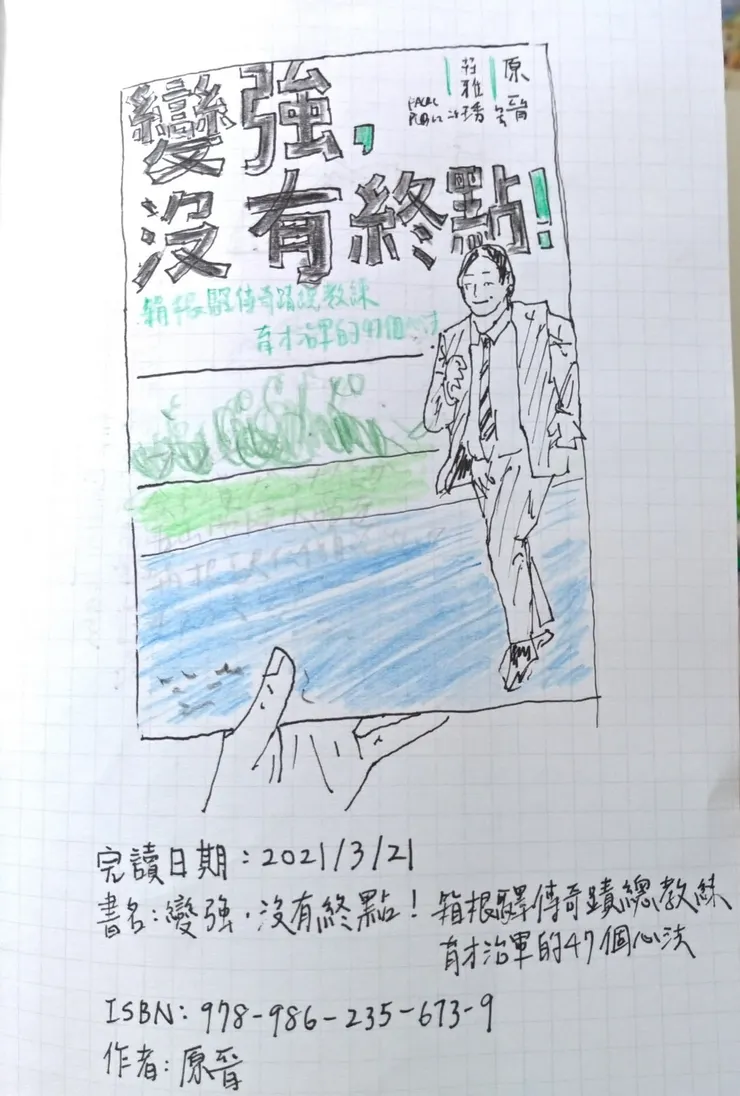 變強,
沒有終點!
原晉 著
莊雅琇
箱根驛傳奇蹟總教練
育才治軍的47個心法
完讀日期:2021/3/21
書名:變強,沒有終點!箱根驛傳奇蹟總教練
育才治軍的47個心法
ISBN:978-986-235-673-9
作者:原晉